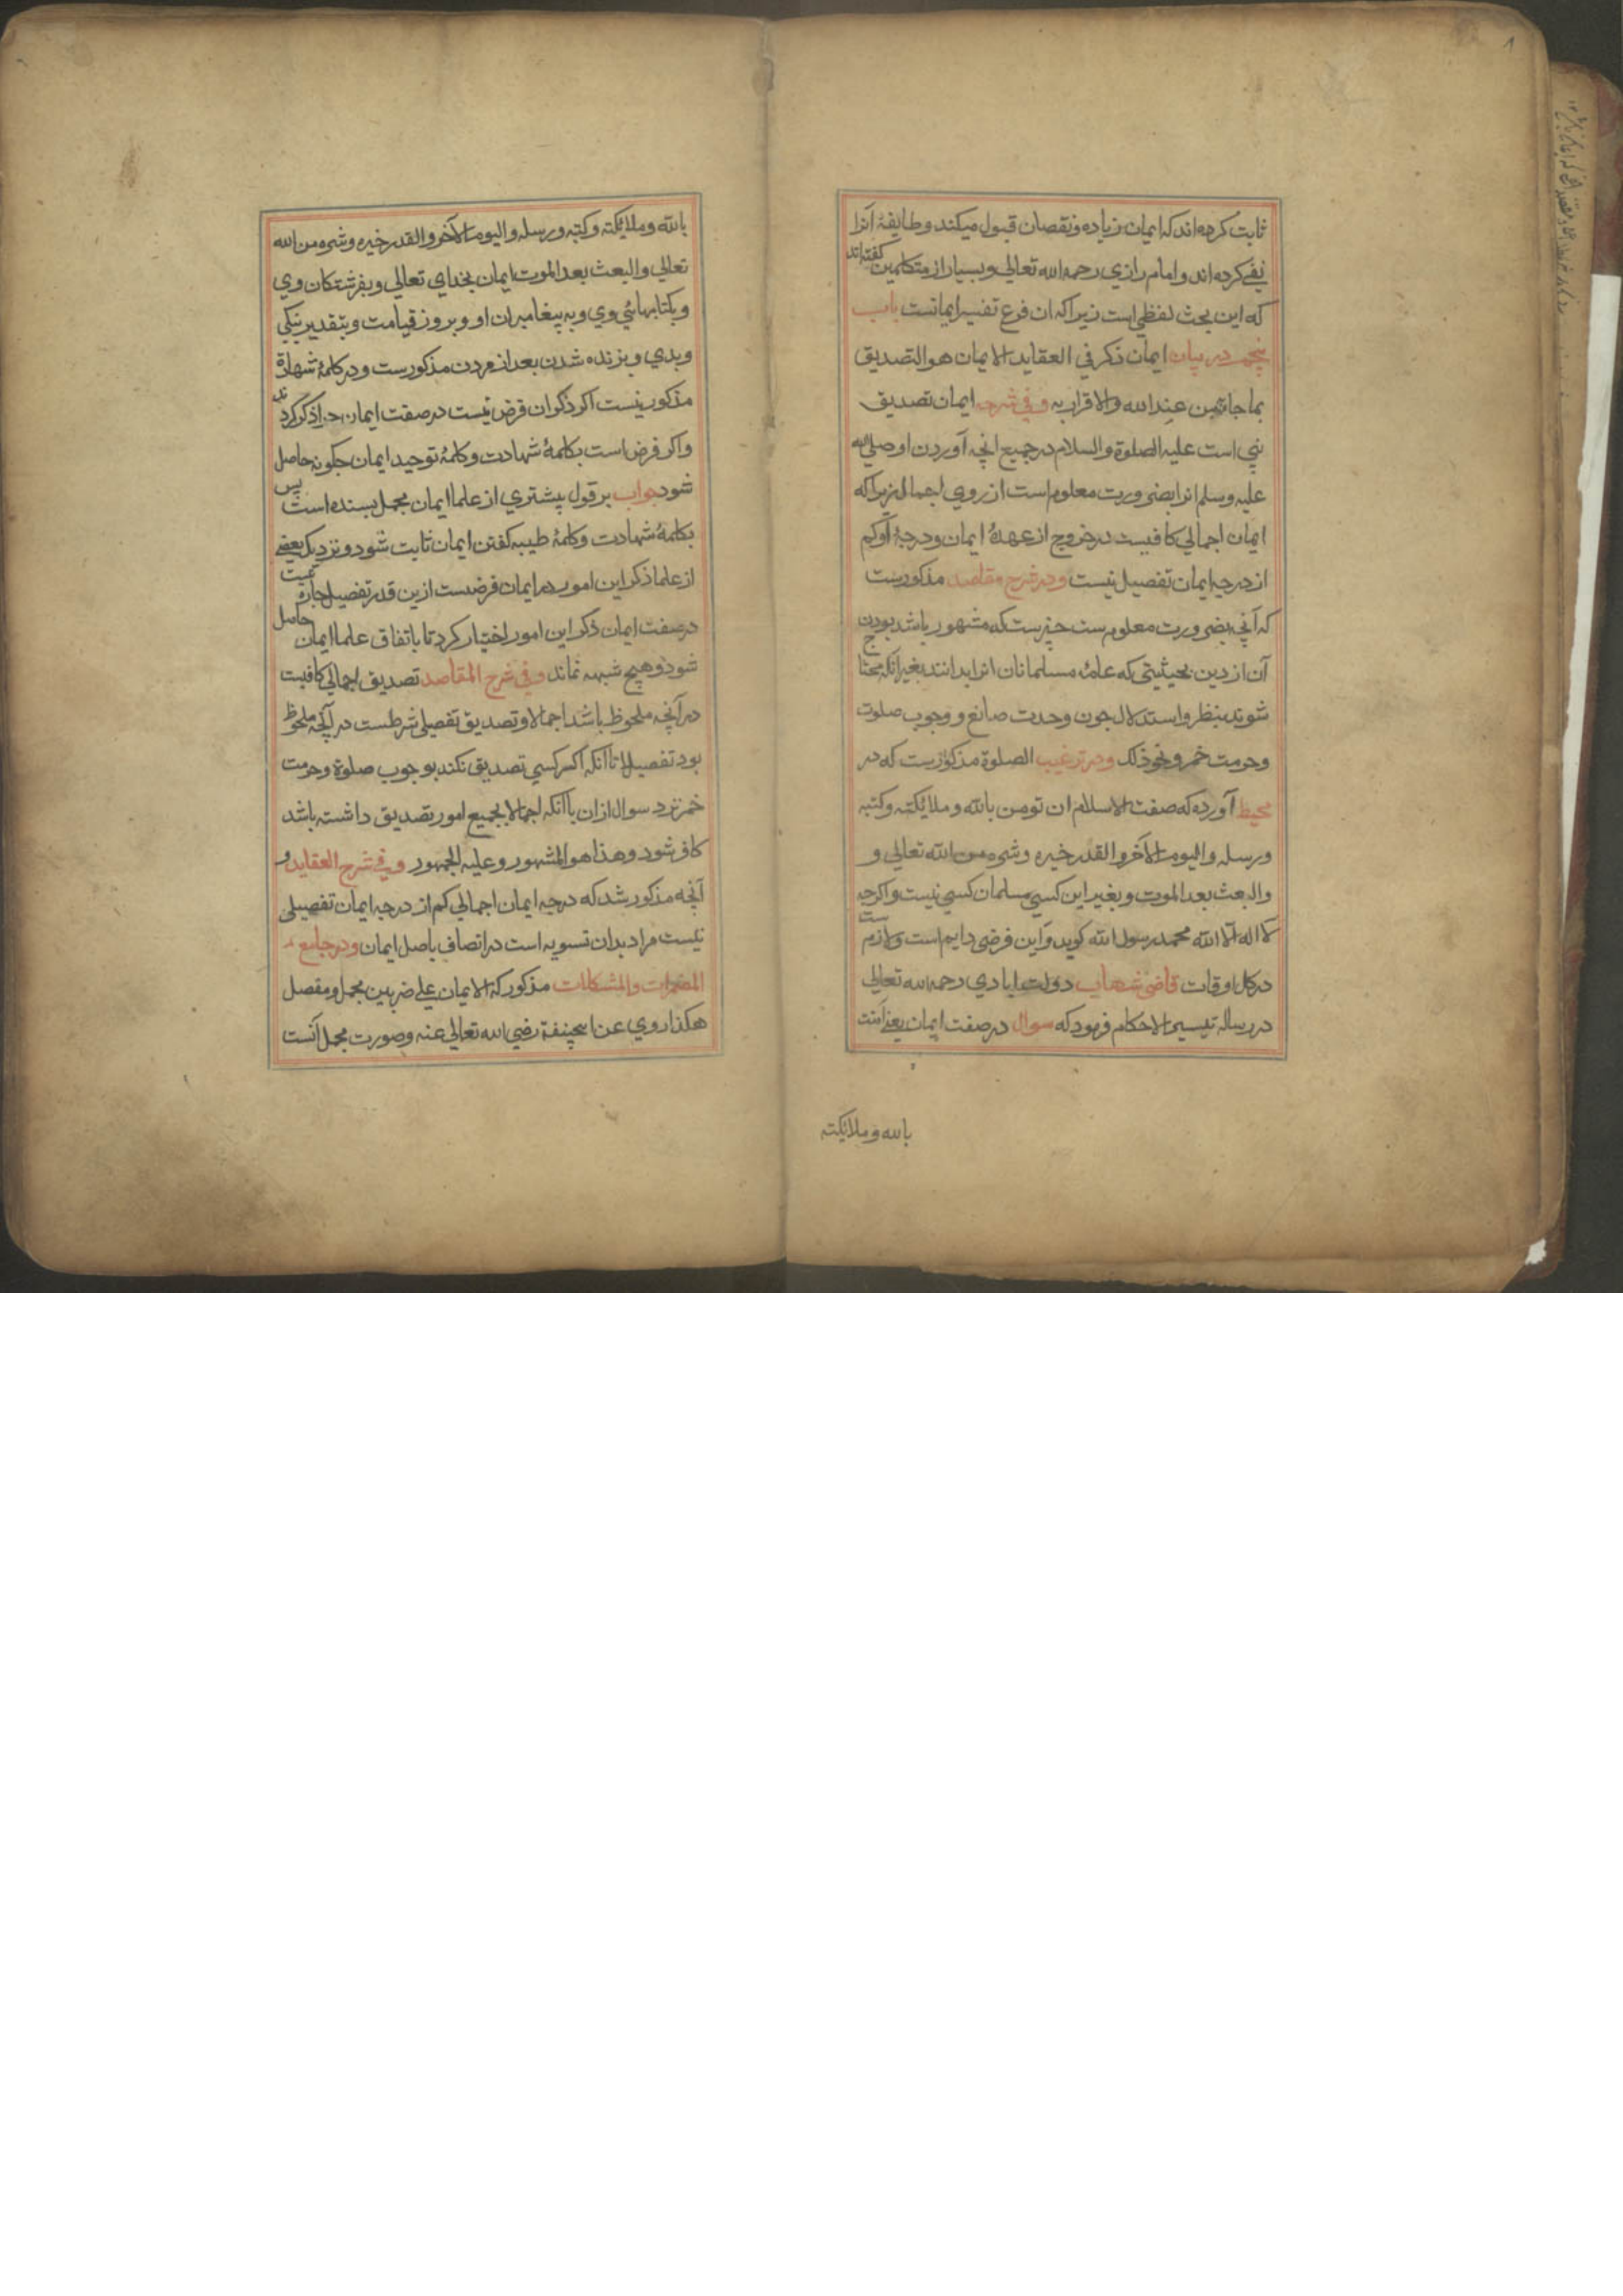 ثابت کرده‌اند که ایمان زیاده و نقصان قبول میکند و طایفهٔ آنرا
نفی کرده اند و امام رازی رحمه الله تعالی و بسیار از متکلمین گفته‌اند
که این بحث لفظی است زیرا که ان فرع تفسیر ایمانست باب
پنجم در بیان ایمان ذکر فی العقاید الایمان هو التصدیق
بما جاء من عند الله والاقرار به و فی شرحه ایمان تصدیق
نبی است علیه الصلوة والسلام در جمیع انچه آوردن او صلی الله
علیه وسلم انرا بضرورت معلوم است از روی اجمال زیرا که
ایمان اجمالی کافیست در خروج از عهدهٔ ایمان و درجهٔ او کم
از درجه ایمان تفصیل نیست و در شرح مقاصد مذکورست
که آنچه بضرورت معلوم ست چیزیست که مشهور باشد بودن
آن از دین بحیثیتی که عامهٔ مسلمانان انرا بدانند بغیر انکه محتاج
شوند بنظر و استدلال چون وحدت صانع و وجوب صلوت
وحرمت خمر و نحو ذلک و در ترغیب الصلوة مذکورست که در
محیط آورده که صفت الاسلام ان تومن بالله و ملائکته وکتبه
ورسله والیوم الآخر والقدر خیره وشره من الله تعالی و
والبعث بعد الموت و بغیر این کسی مسلمان کسی نیست و اکرچه
لا اله الا الله محمد رسول الله کوید و این فرض دایم است و لازم ست
در کل اوقات قاضی شهاب دولت ابادی رحمه الله تعالی
در رساله تیسیر الاحکام فرمود که سوال در صفت ایمان یعنی آمنت
بالله و ملائکته
بالله وملائکته وکتبه ورسله والیوم الآخر والقدر خیره وشره من الله
تعالی والبعث بعد الموت ایمان بخدای تعالی و بفرشتکان وی
و بکتابهائی وی و به پیغامبران او و بروز قیامت و بتقدیر نیکی
و بدی و بزنده شدن بعد از مردن مذکورست و در کلمهٔ شهادة
مذکور نیست اکر ذکر ان فرض نیست در صفت ایمان چرا ذکر کردند
واکر فرض است بکلمهٔ شهادت وکلمهٔ توحید ایمان چکونه حاصل
شود جواب بر قول بیشتری از علما ایمان مجمل بسنده است پس
بکلمهٔ شهادت وکلمهٔ طیبه کفتن ایمان ثابت شود و نزدیک بعضی
از علما ذکر این امور در ایمان فرضست ازین قدر تفصیل چاره نیست
در صفت ایمان ذکر این امور اختیار کرد تا باتفاق علما ایمان حاصل
شود و هیچ شبهه نماند و فی شرح المقاصد تصدیق اجمالی کافیست
در آنچه ملحوظ باشد اجمالا و تصدیق تفصیلی شرطست در آنچه ملحوظ
بود تفصیلا تا آنکه اکر کسی تصدیق نکند بوجوب صلوة و حرمت
خمر نزد سوال از ان با آنکه اجمالا بجمیع امور تصدیق داشته باشد
کافر شود وهذا هو المشهور وعلیه الجمهور و فی شرح العقاید و
آنچه مذکور شد که درجه ایمان اجمالی کم از درجه ایمان تفصیلی
نیست مراد بدان تسویه است در اتصاف باصل ایمان و در جامع
المضمرات والمشکلات مذکور که الایمان علی ضربین مجمل و مفصل
هکذا روی عن ابیحنیفة رضی الله تعالی عنه وصورت مجمل آنست